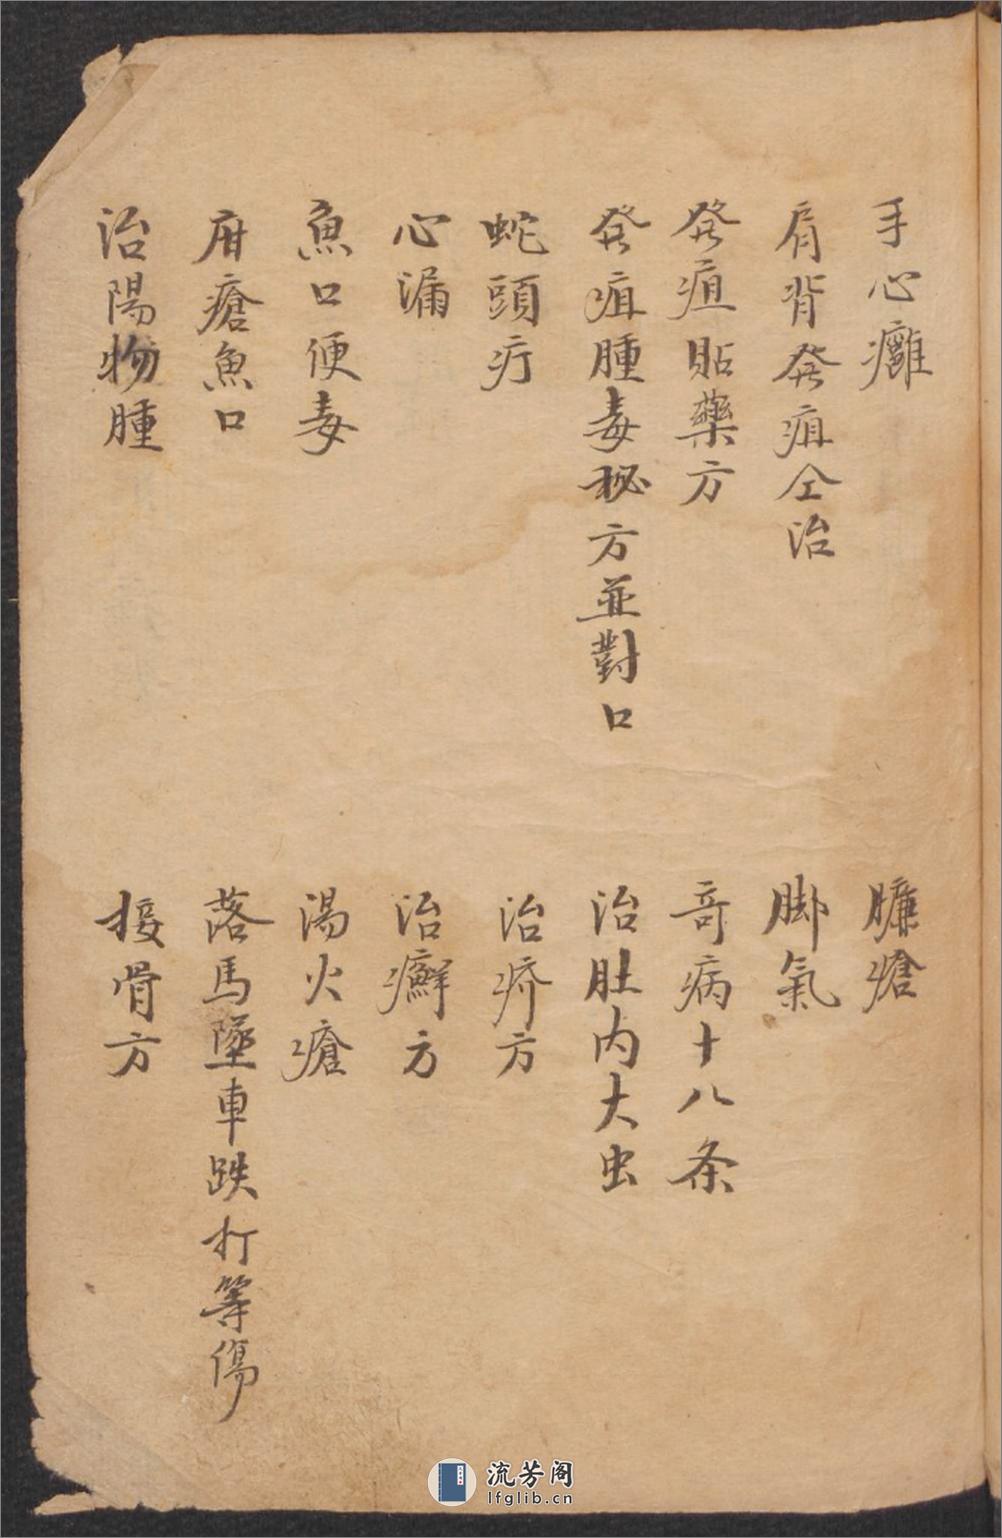 手心癰
肩背發疽仝治
發疽貼藥方
發疽腫毒秘方並對口
蛇頭疔
心漏
魚口便毒
疳瘡魚口
治陽物腫
臁瘡
脚氣
竒病十八条
治肚内大虫
治疥方
治癬方
湯火瘡
落馬墜車跌打等傷
接骨方
流芳阁
lfglib.cn